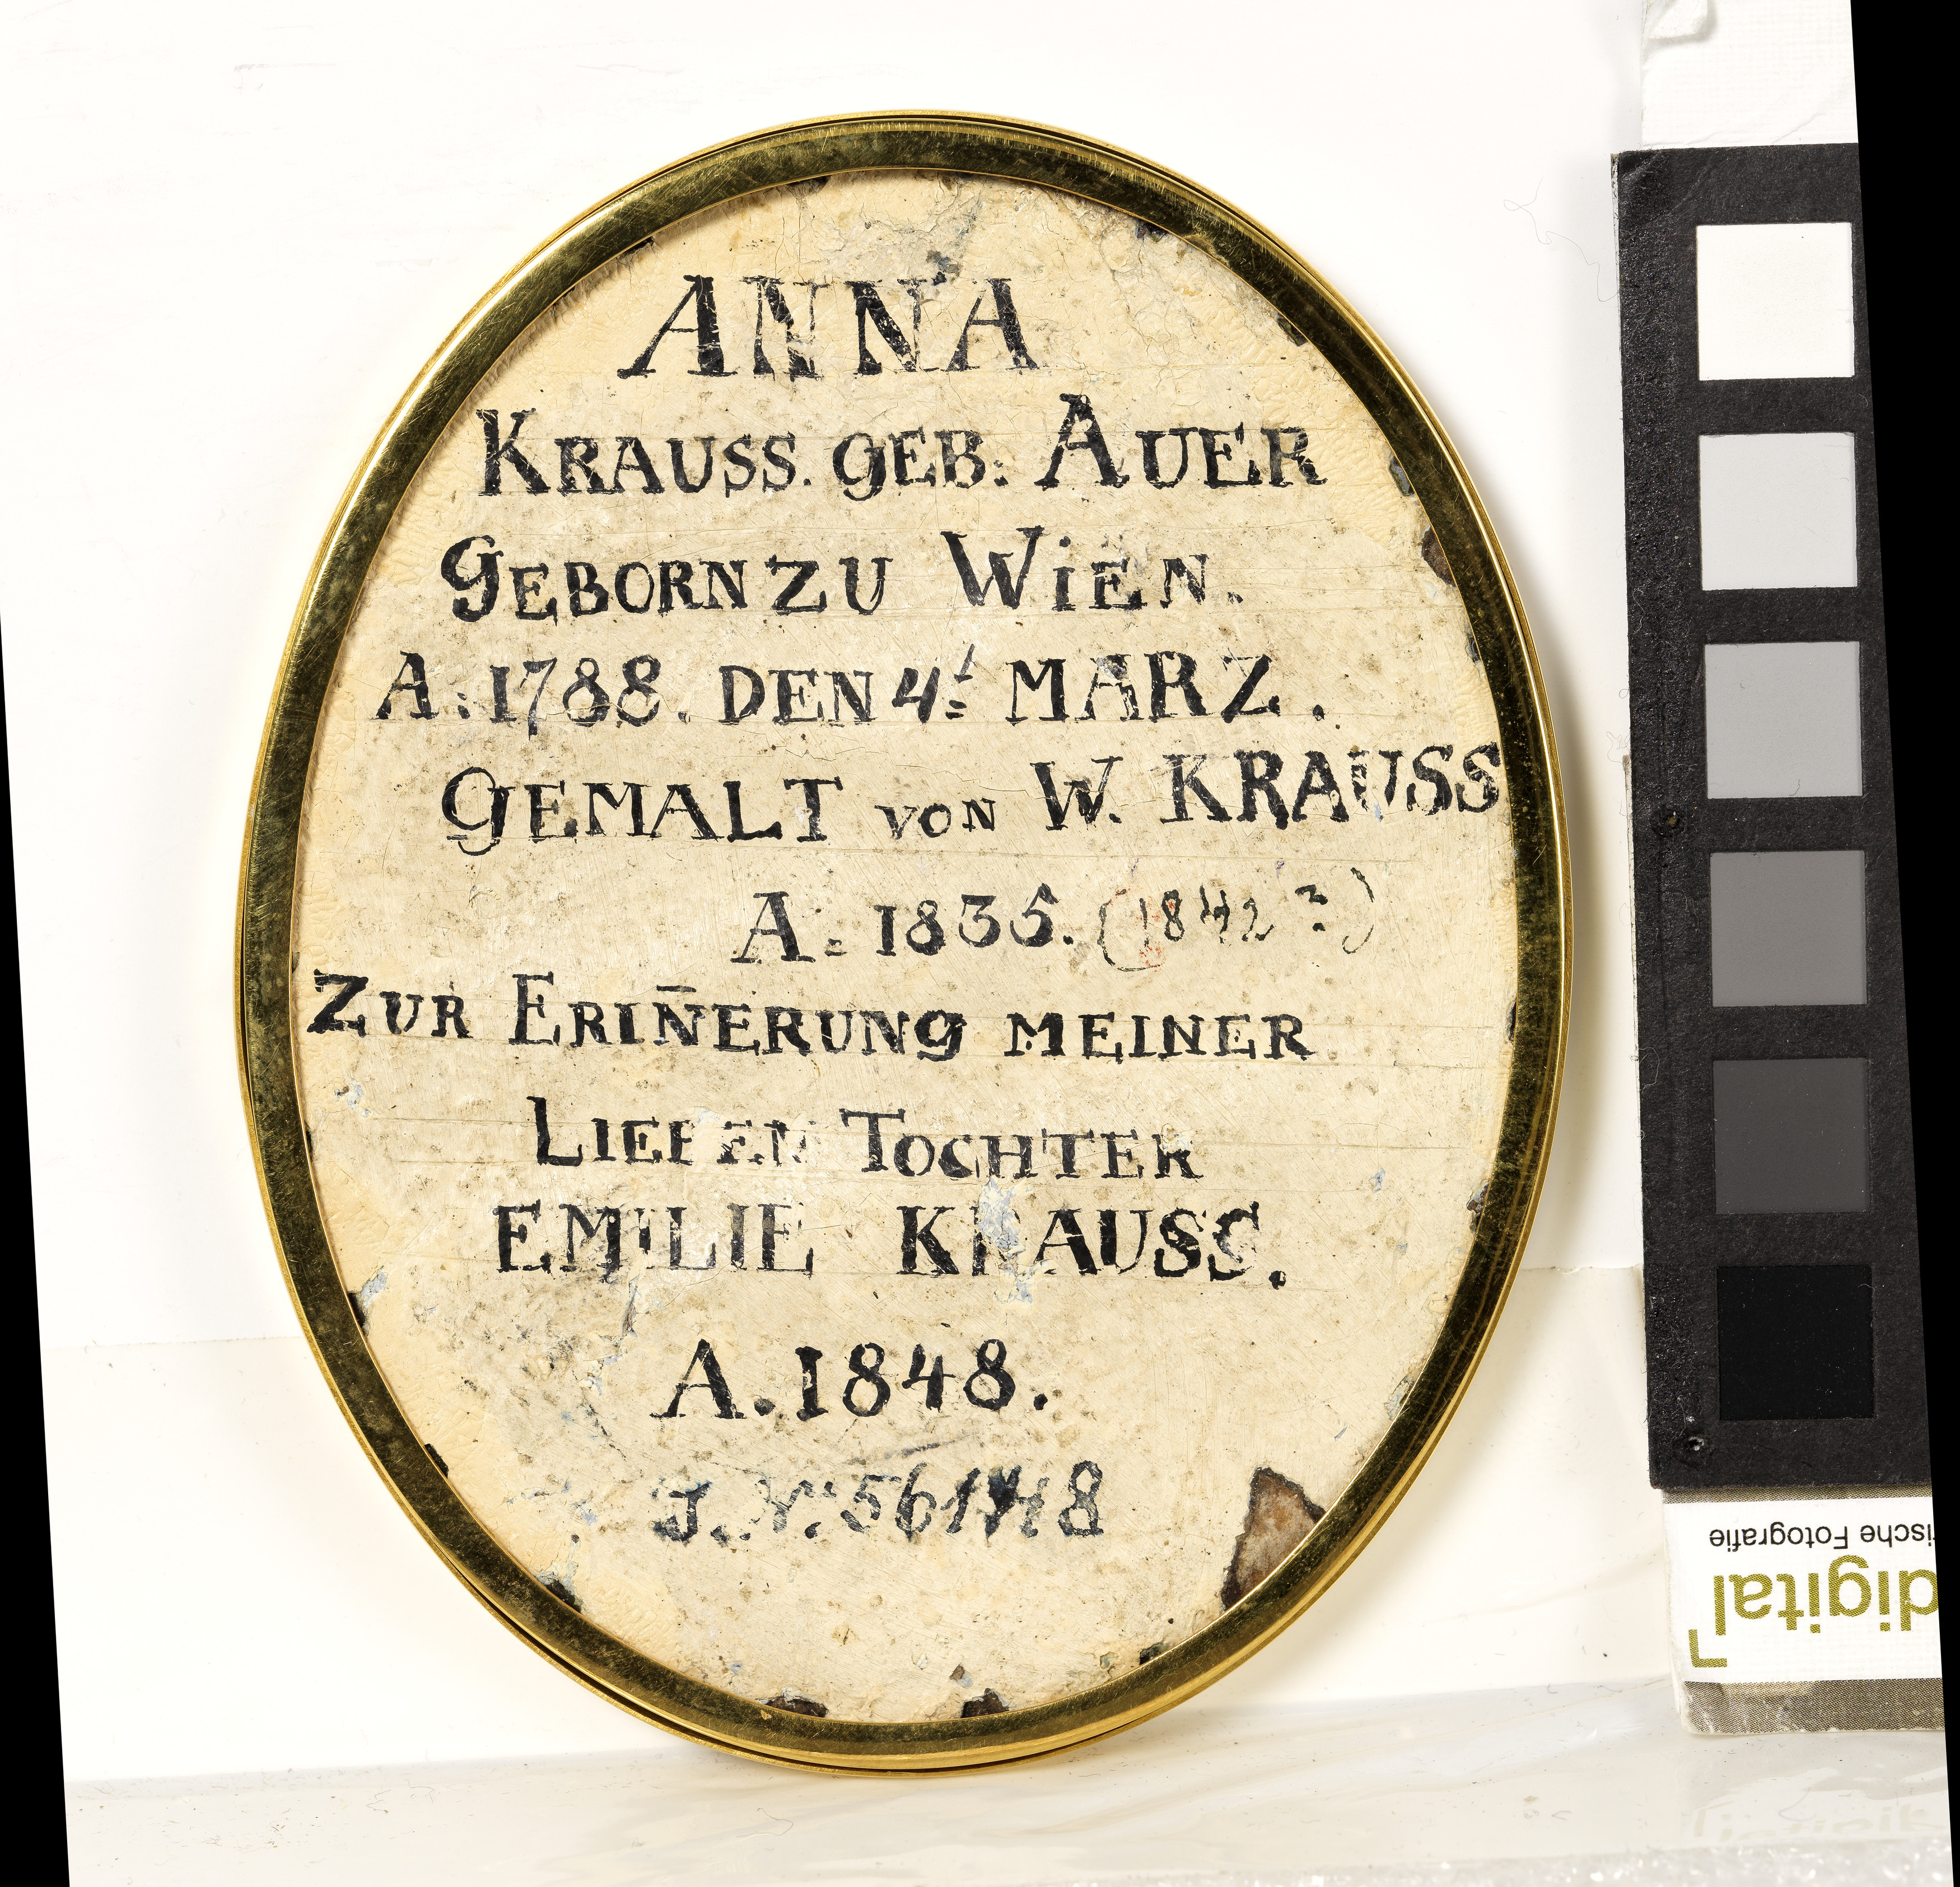 ANNA
KRAUSS. GEB: AUER
GEBORN ZU WiEN.
A:1788. DEN 4: MARZ.
GEMALT VON W. KRAUSS
A: 1835. (1842?)
ZUR ERIN̄ERUNG MEINER
LIEBEN TOCHTER
EMILIE KRAUSS.
A. 1848.
J. Nr:
rische Fotografie
digital